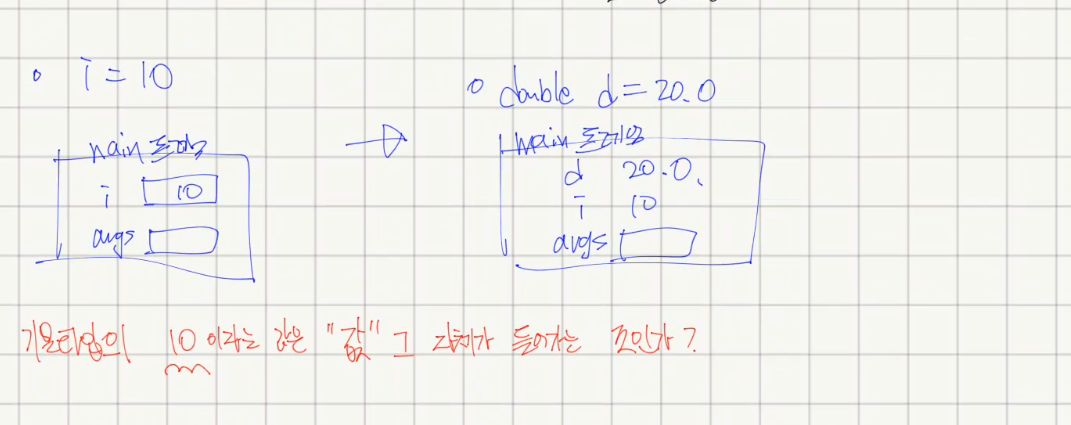 i = 10
double d = 20.0
main 프레임
i 10
args
main 프레임
d 20.0
i 10
args
기본타입의 10 이라는 값은 "값" 그 자체가 들어가는 것인가?